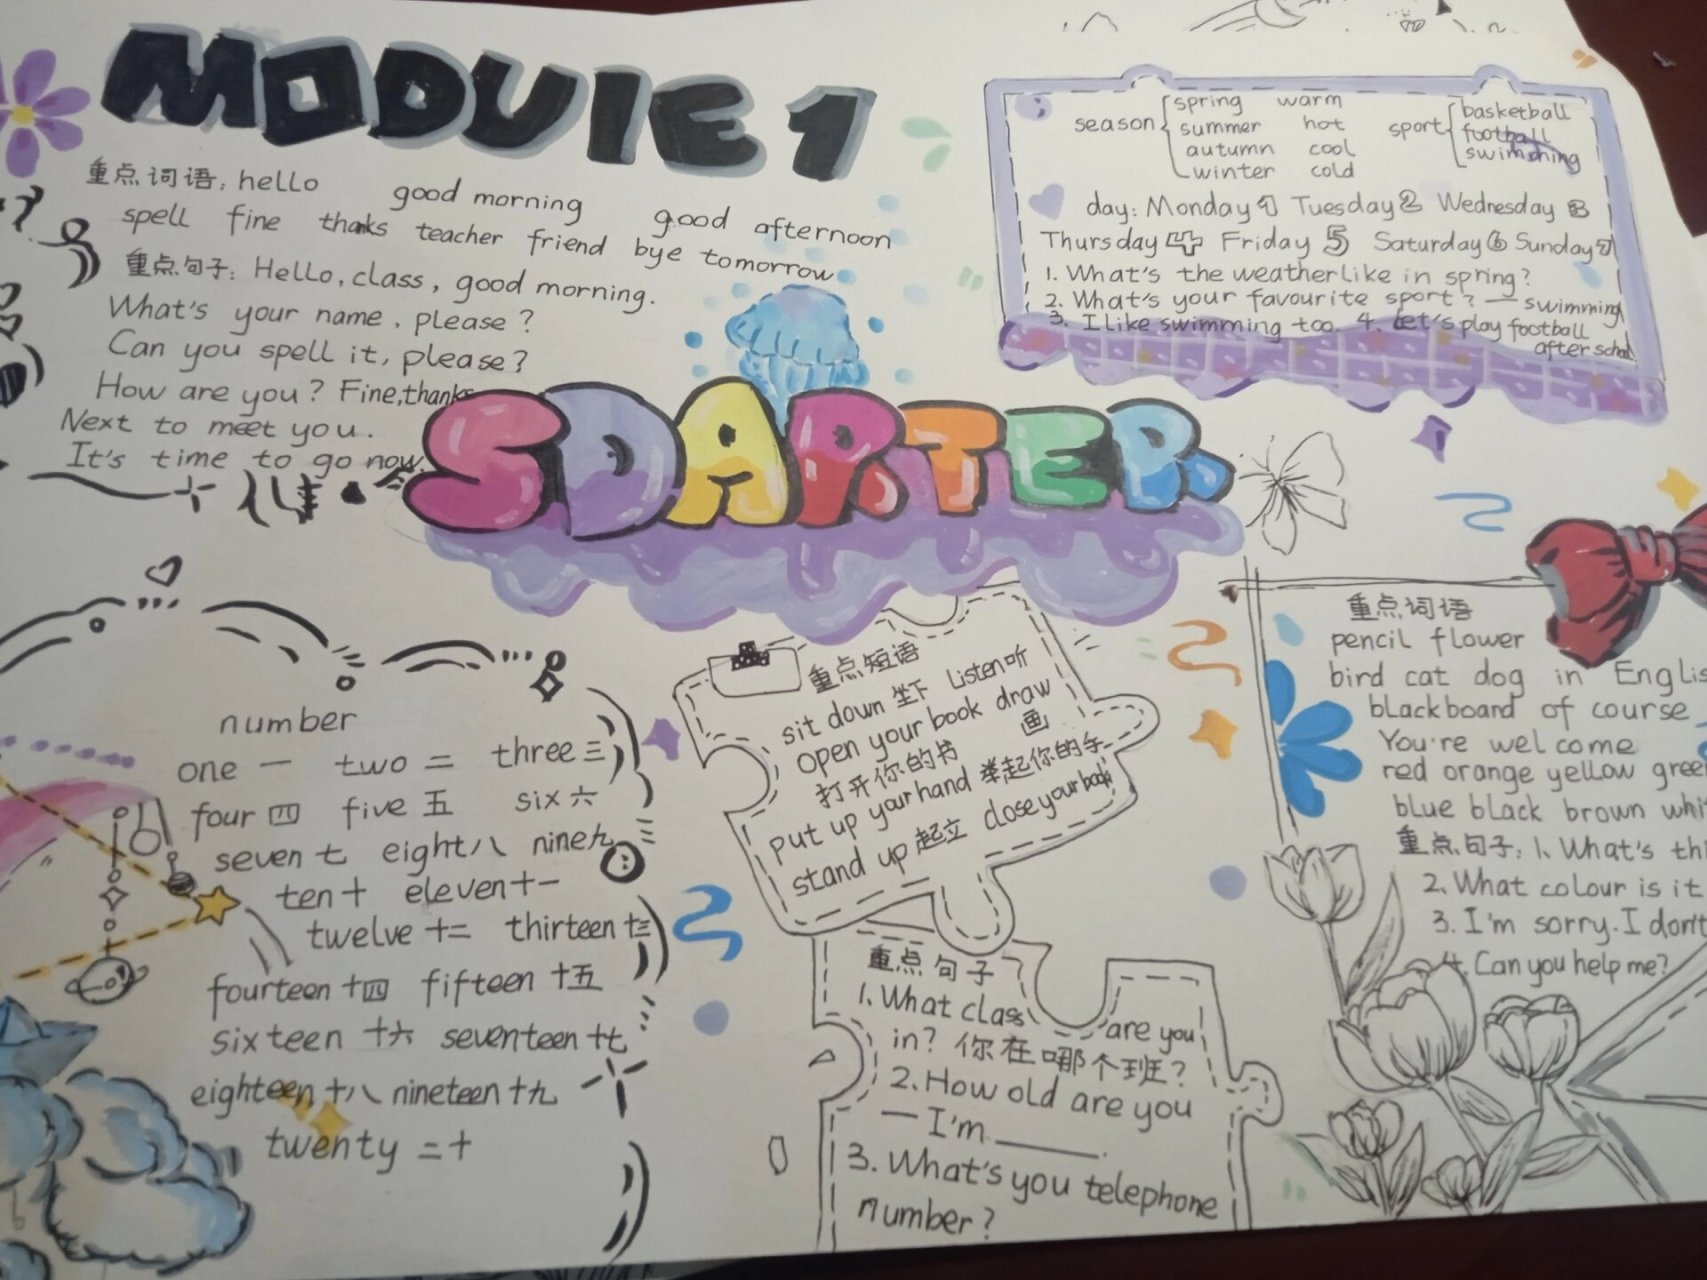 MODUlE 1
重点词语: hello good morning good afternoon
spell fine thanks teacher friend bye tomorrow
重点句子: Hello, class, good morning.
What's your name, please?
Can you spell it, please?
How are you? Fine, thanks
Next to meet you.
It's time to go now.
season spring warm
summer hot
autumn cool
winter cold
sport basketball
football
swimming
day: Monday 1 Tuesday 2 Wednesday 3
Thursday 4 Friday 5 Saturday 6 Sunday 7
1. What's the weather like in spring?
2. What's your favourite sport? — swimming
3. I like swimming too. 4. Let's play football
after school
number
one 一 two 二 three 三
four 四 five 五 six 六
seven 七 eight 八 nine 九
ten 十 eleven 十一
twelve 十二 thirteen 十三
fourteen 十四 fifteen 十五
sixteen 十六 seventeen 十七
eighteen 十八 nineteen 十九
twenty 二十
重点短语
sit down 坐下 Listen 听
open your book draw
打开你的书 画
put up your hand 举起你的手
stand up 起立 close your book
重点句子
1. What class are you
in? 你在哪个班?
2. How old are you
— I'm ______.
3. What's you telephone
number?
重点词语
pencil flower
bird cat dog in
blackboard of course
You're welcome
red orange yellow
blue black brown
重点句子: 1. What's
2. What colour is it
3. I'm sorry. I don't
4. Can you help me?